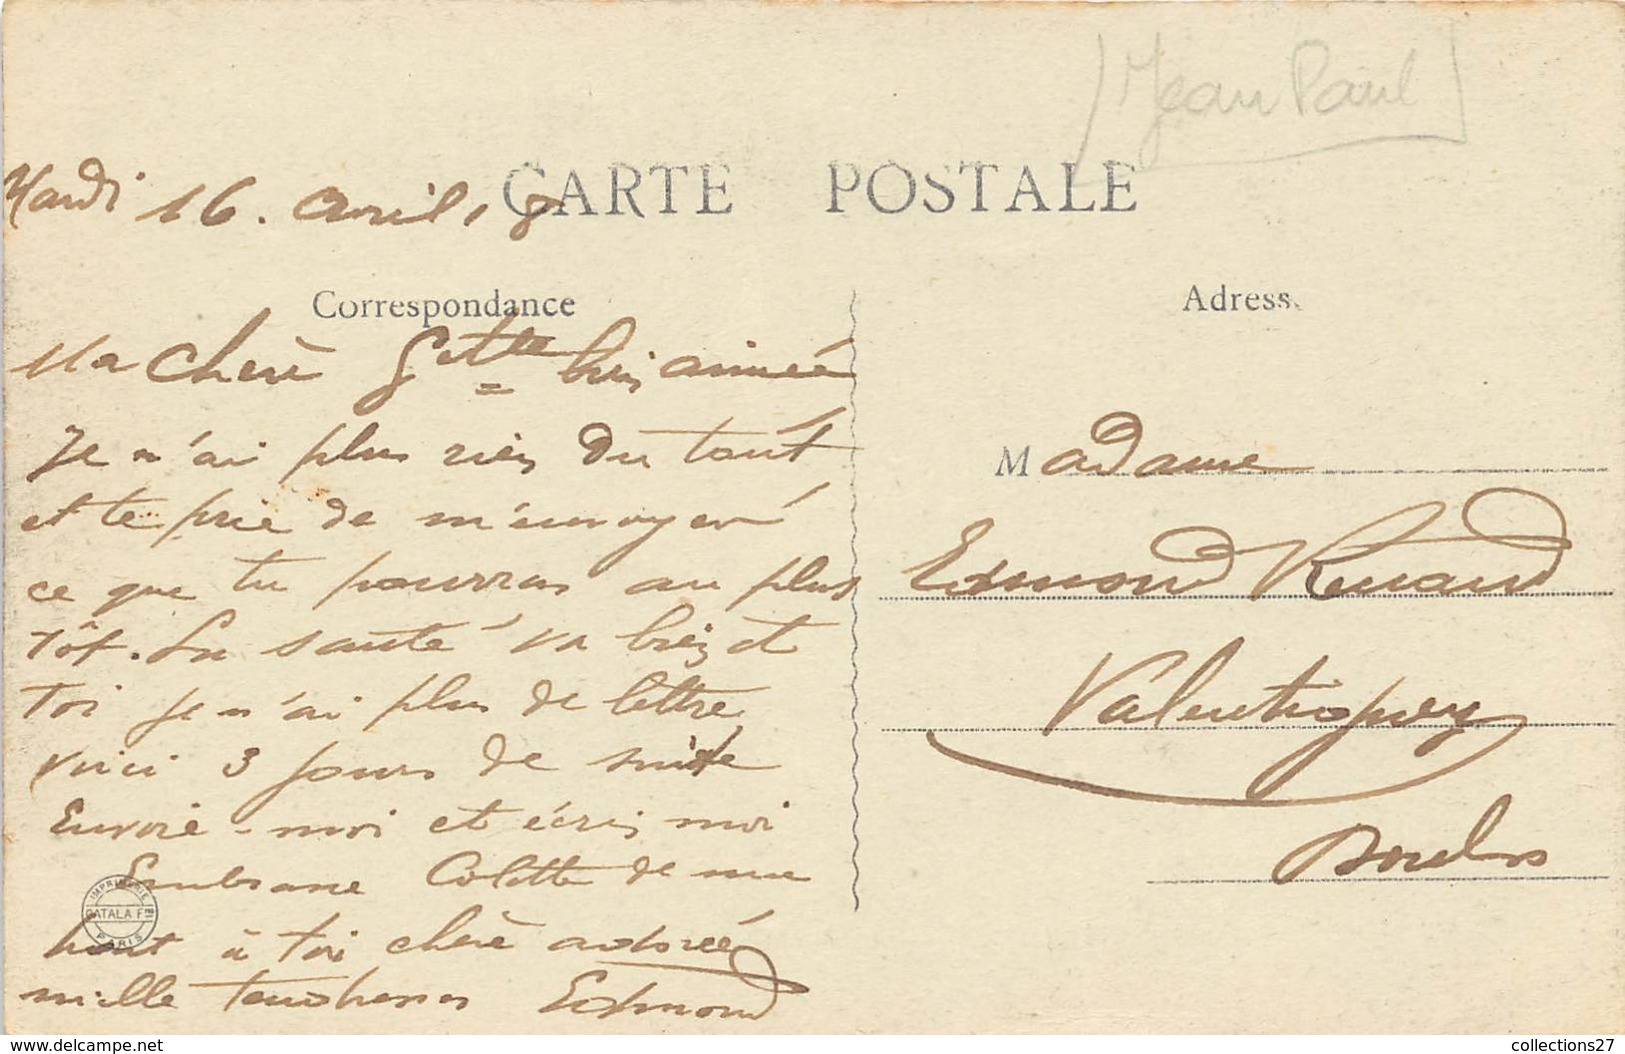 Jean Paul
CARTE POSTALE
Mardi 16 Avril 18
Correspondance
Ma chère G bien aimée
Je n'ai plus rien du tout
et te prie de m'envoyer
ce que tu pourras au plus
tôt. La santé va bien et
toi je n'ai plus de lettre
voici 3 jours de suite
Envoie-moi et écris moi
Embrasse Colette de ma
à toi chère adorée
mille tendresses Edmond
IMPRIMERIE
CATALA F
PARIS
Adresse
Madame
Edmond Renard
Valentigney
Doubs
www.delcampe.net
collections27